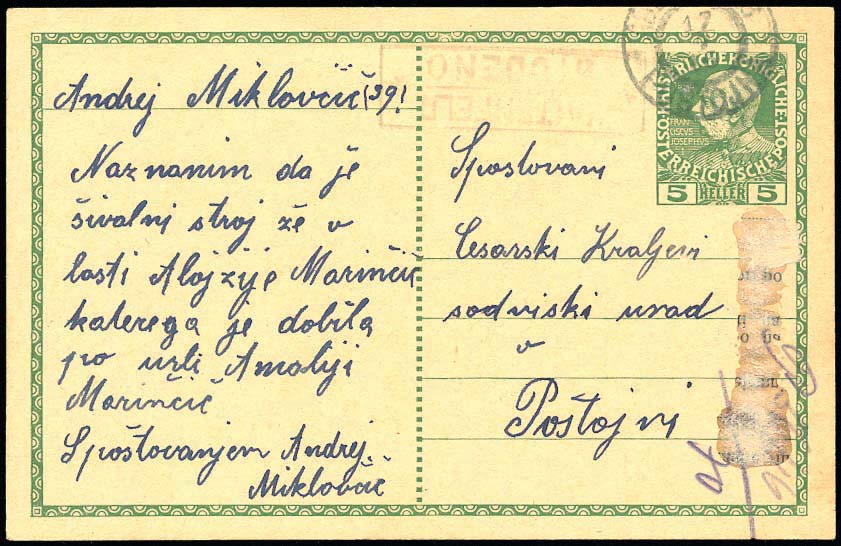 Andrej Miklovčič (39!
Naznanim da je
šivalni stroj že v
lasti Alojzije Marinčič
katerega je dobila
po umrli Amaliji
Marinčič
Spoštovanjem Andrej
Miklovčič
KAISERLICHEKÖNIGLICHE
ÖSTERREICHISCHEPOST
FRAN
CISCUS
JOSEPHUS
5 HELLER 5
12
STUDENO
Spoštovani
Cesarski Kraljevi
sodniski urad
v
Poštojni